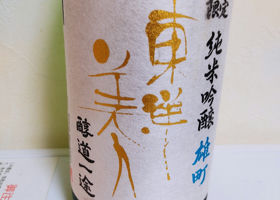 限定
純米吟醸
雄町
東洋美人
醇道一途